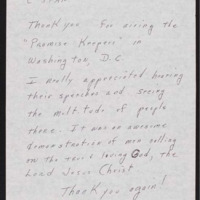 Thank you for airing the
"Promise Keepers" in
Washington, D.C
I really appreciated hearing
their speeches and seeing
the multitude of people
there. It was an awesome
demonstration of men calling
on the loving God, the
Lord Jesus Christ
Thank you again!